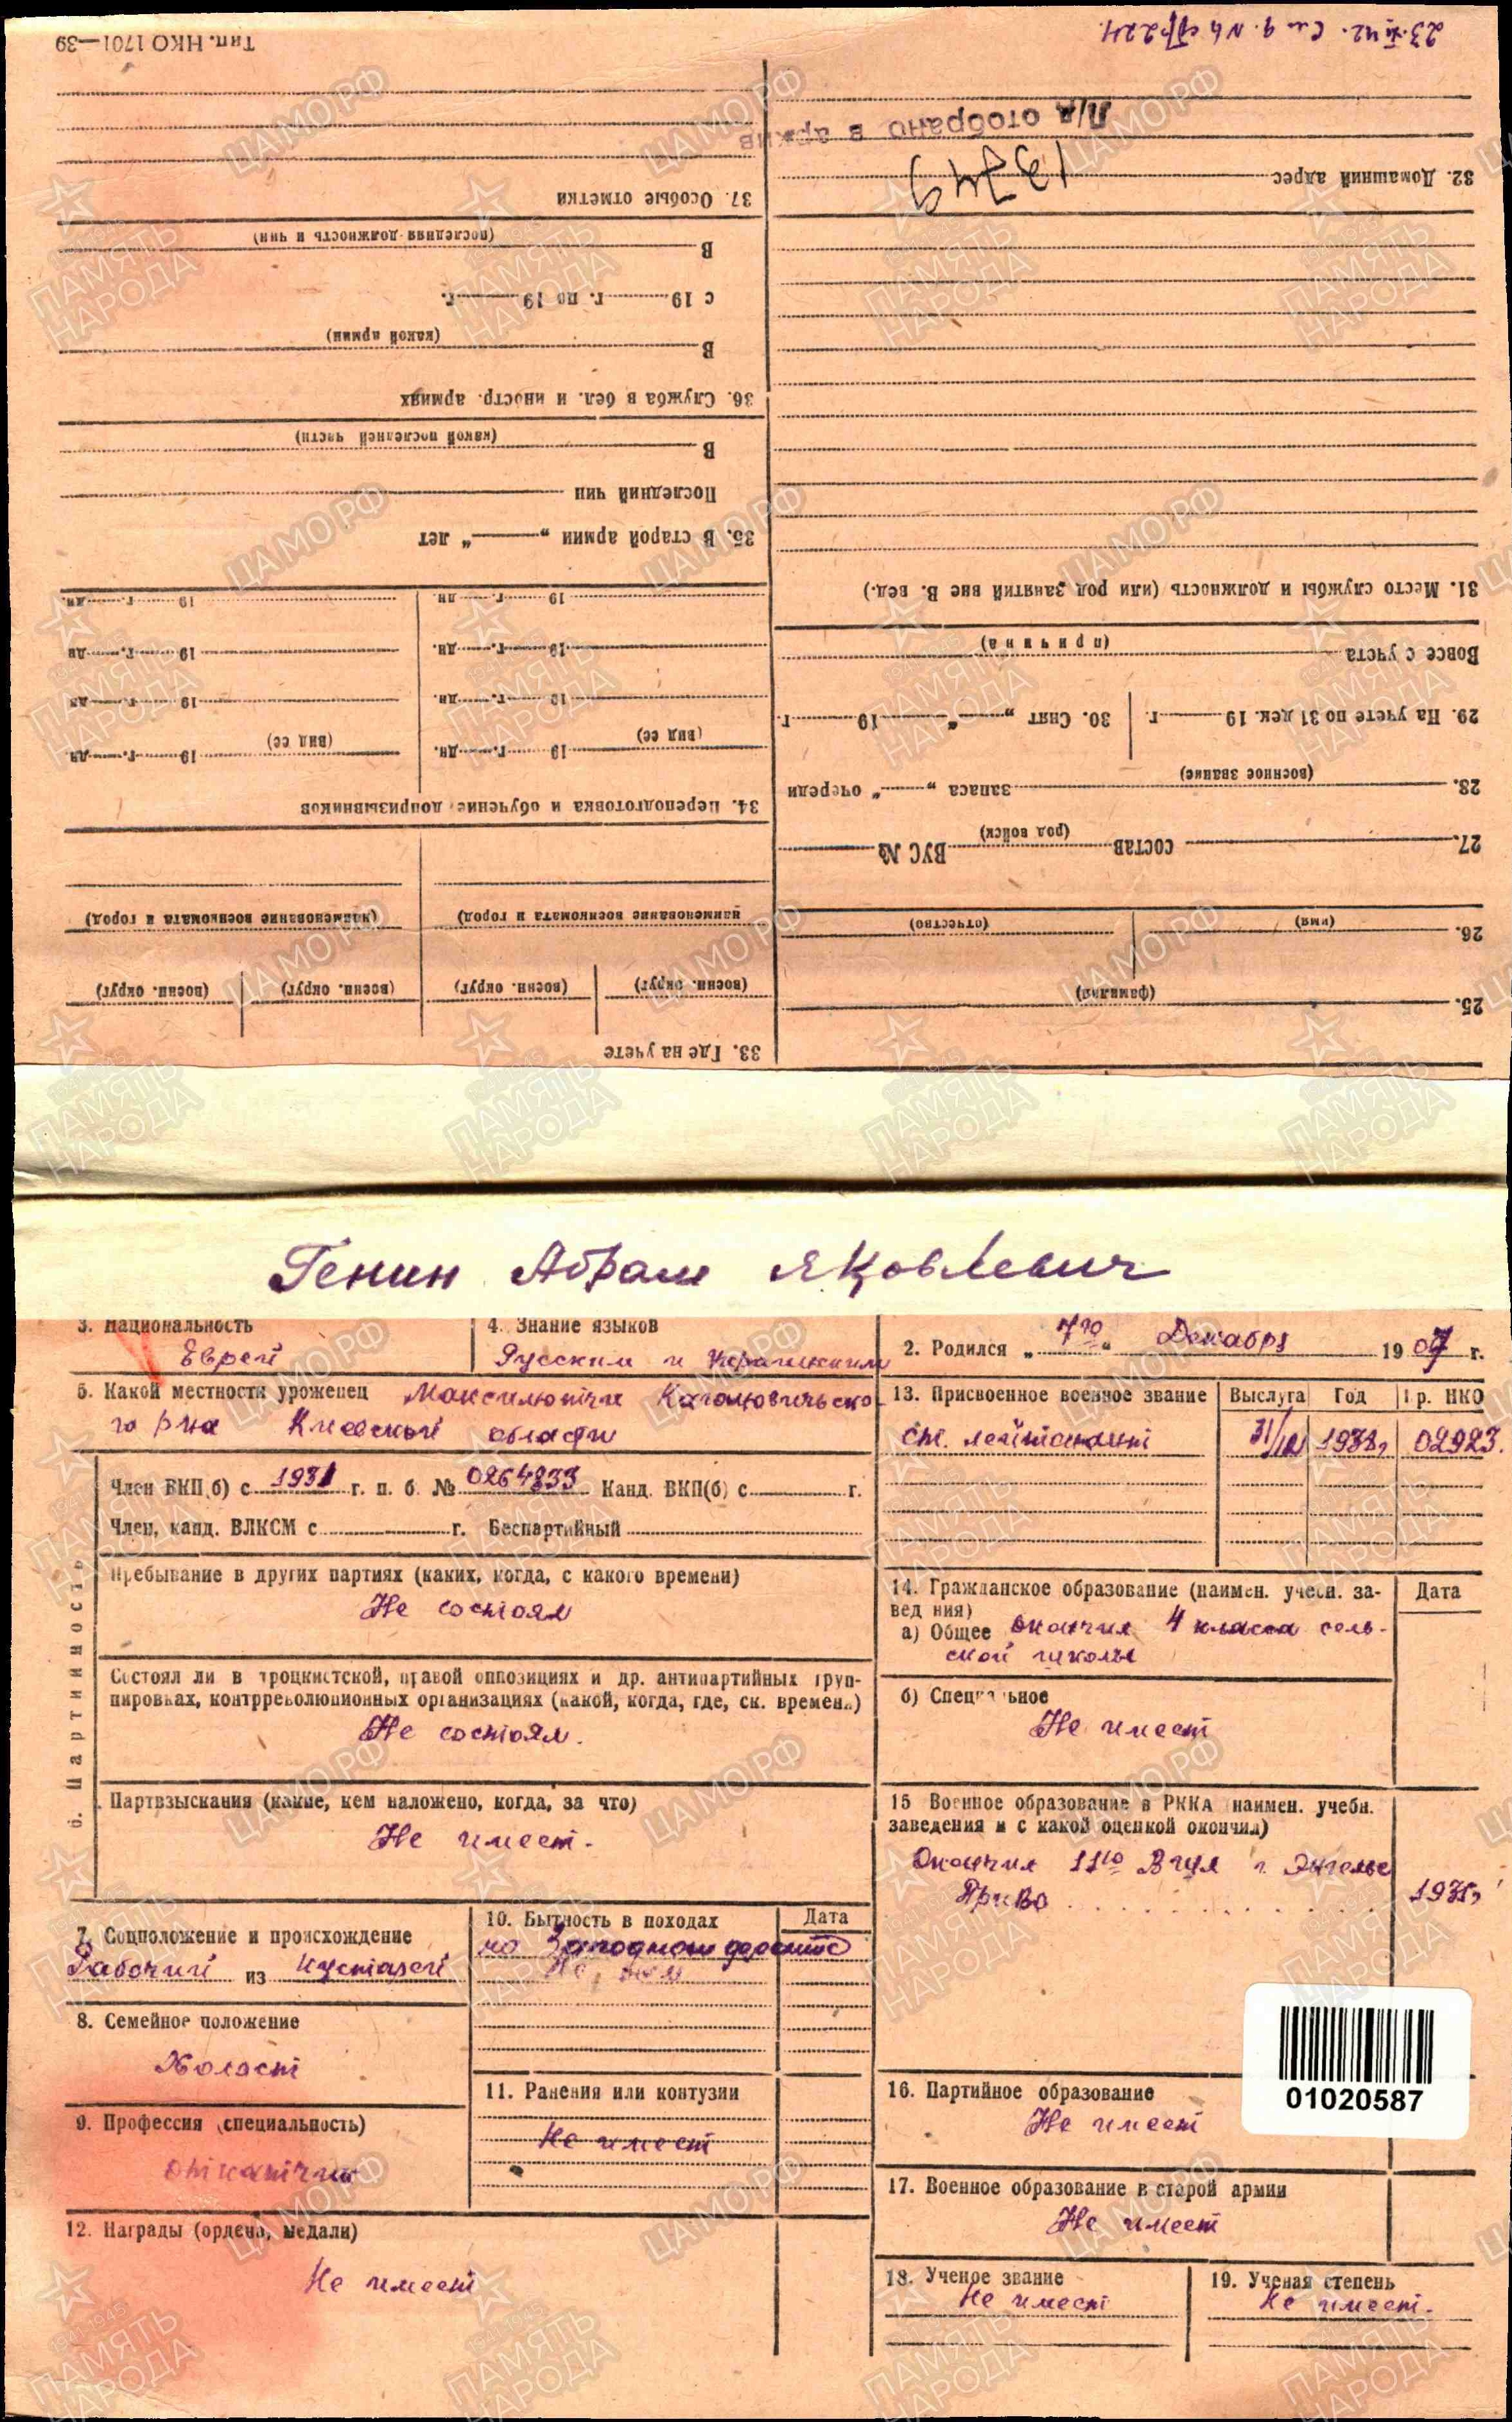 Тип. НКО 1701—39
37. Особые отметки
(последняя должность и чин)
В
с 19 г. по 19 г.
(какой армии)
В
36. Служба в бел. и иностр. армиях
(какой последней части)
В
Последний чин
35. В старой армии „ “ лет
19 г. дн. 19 г. дн.
19 г. дн. 19 г. дн.
19 г. дн. 19 г. дн.
(вид ее) 19 г. дн. (вид ее) 19 г. дн.
34. Переподготовка и обучение допризывников
(наименование военкомата и город) наименование военкомата и город)
(воени. округ) (воени. округ) (воени. округ) (воени. округ)
33. Где на учете
23. XI 42. См 9. N4 стр 224.
Л/д отобрано в архив
13749
32. Домашний адрес
31. Место службы и должность (или род занятий вне В. вед.)
(причина)
Вовсе с учета
29. На учете по 31 дек. 19 г. 30. Снят „ “ 19 г
(военное звание)
28. запаса „ “ очереди
27. состав (род войск) ВУС №
26. (имя) (отчество)
25. (фамилия)
Генин Абрам Яковлевич
3. Национальность
Еврей
4. Знание языков
Русским и Украинским
2. Родился „ 7го “ Декабря 1907 г.
5. Какой местности уроженец
Кагановичьско-
го р-на Киевской области
13. Присвоенное военное звание Выслуга Год Пр. НКО
ст. лейтенант 31/12 1938г 02923.
6. Партийность
Член ВКП(б) с 1931 г. п. б. № 0264833 Канд. ВКП(б) с г.
Член, канд. ВЛКСМ с г. Беспартийный
Пребывание в других партиях (каких, когда, с какого времени)
Не состоял
Состоял ли в троцкистской, правой оппозициях и др. антипартийных груп-
пировках, контрреволюционных организациях (какой, когда, где, ск. времени)
Не состоял.
Партвзыскания (какие, кем наложено, когда, за что)
Не имеет.
14. Гражданское образование (наимен. учебн. за- Дата
ведения)
а) Общее Окончил 4 класса сель-
ской школы
б) Специальное
Не имеет
15 Военное образование в РККА наимен. учебн.
заведения и с какой оценкой окончил)
Окончил г. Энгельс
ПриВО
7. Соцположение и происхождение
Рабочий из Кустарей
8. Семейное положение
Холост
9. Профессия (специальность)
10. Бытность в походах Дата
на Западном фронте
11. Ранения или контузии
Не имеет
12. Награды (ордена, медали)
Не имеет
01020587
16. Партийное образование
Не имеет
17. Военное образование в старой армии
Не имеет
18. Ученое звание
Не имеет
19. Ученая степень
Не имеет.
ПАМЯТЬ НАРОДА
1941-1945
ЦАМО РФ